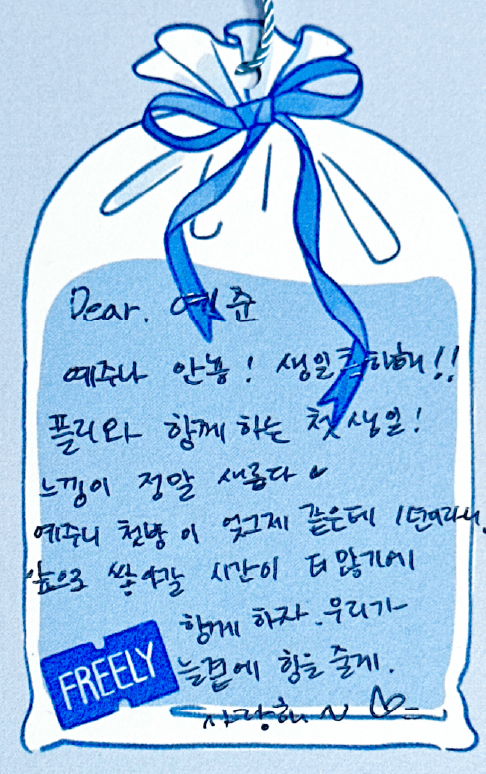 Dear. 예준
예주나 안뇽! 생일축하해!!
플리와 함께 하는 첫 생일!
느낌이 정말 새롭다
예주니 첫방이 엊그제 같은데 1년이라니,
앞으로 쌓아갈 시간이 더 많기에
함께 하자. 우리가
늘곁에 힘을 줄게.
사랑해 ~ ♡
FREELY